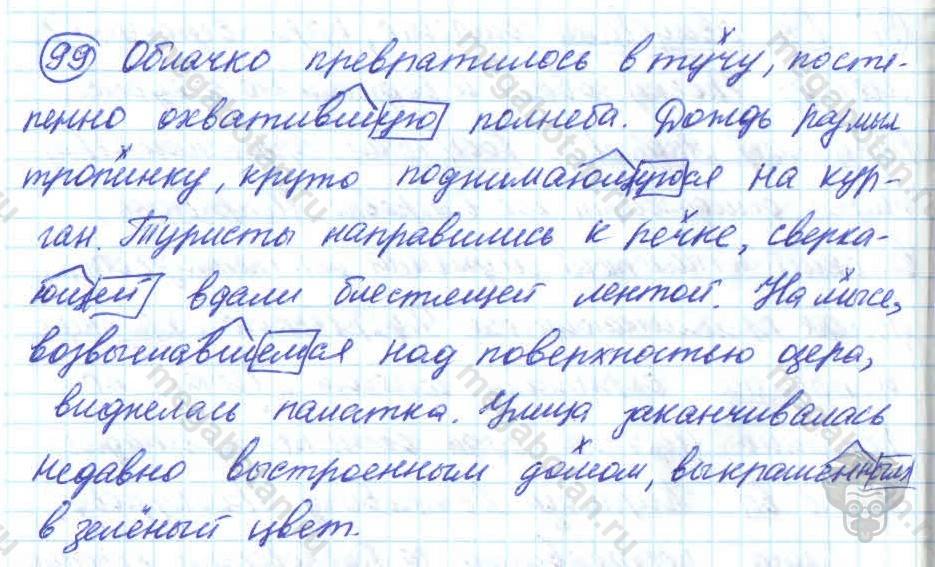 99 Облачко превратилось в тучу, посте-
пенно охватившую полнеба. Дождь размыл
тропинку, круто поднимающуюся на кур-
ган. Туристы направились к речке, сверка-
ющей вдали блестящей лентой. На мысе,
возвышавшемся над поверхностью озера,
виднелась палатка. Улица заканчивалась
недавно выстроенным домом, выкрашенным
в зелёный цвет.
mgabotan.ru